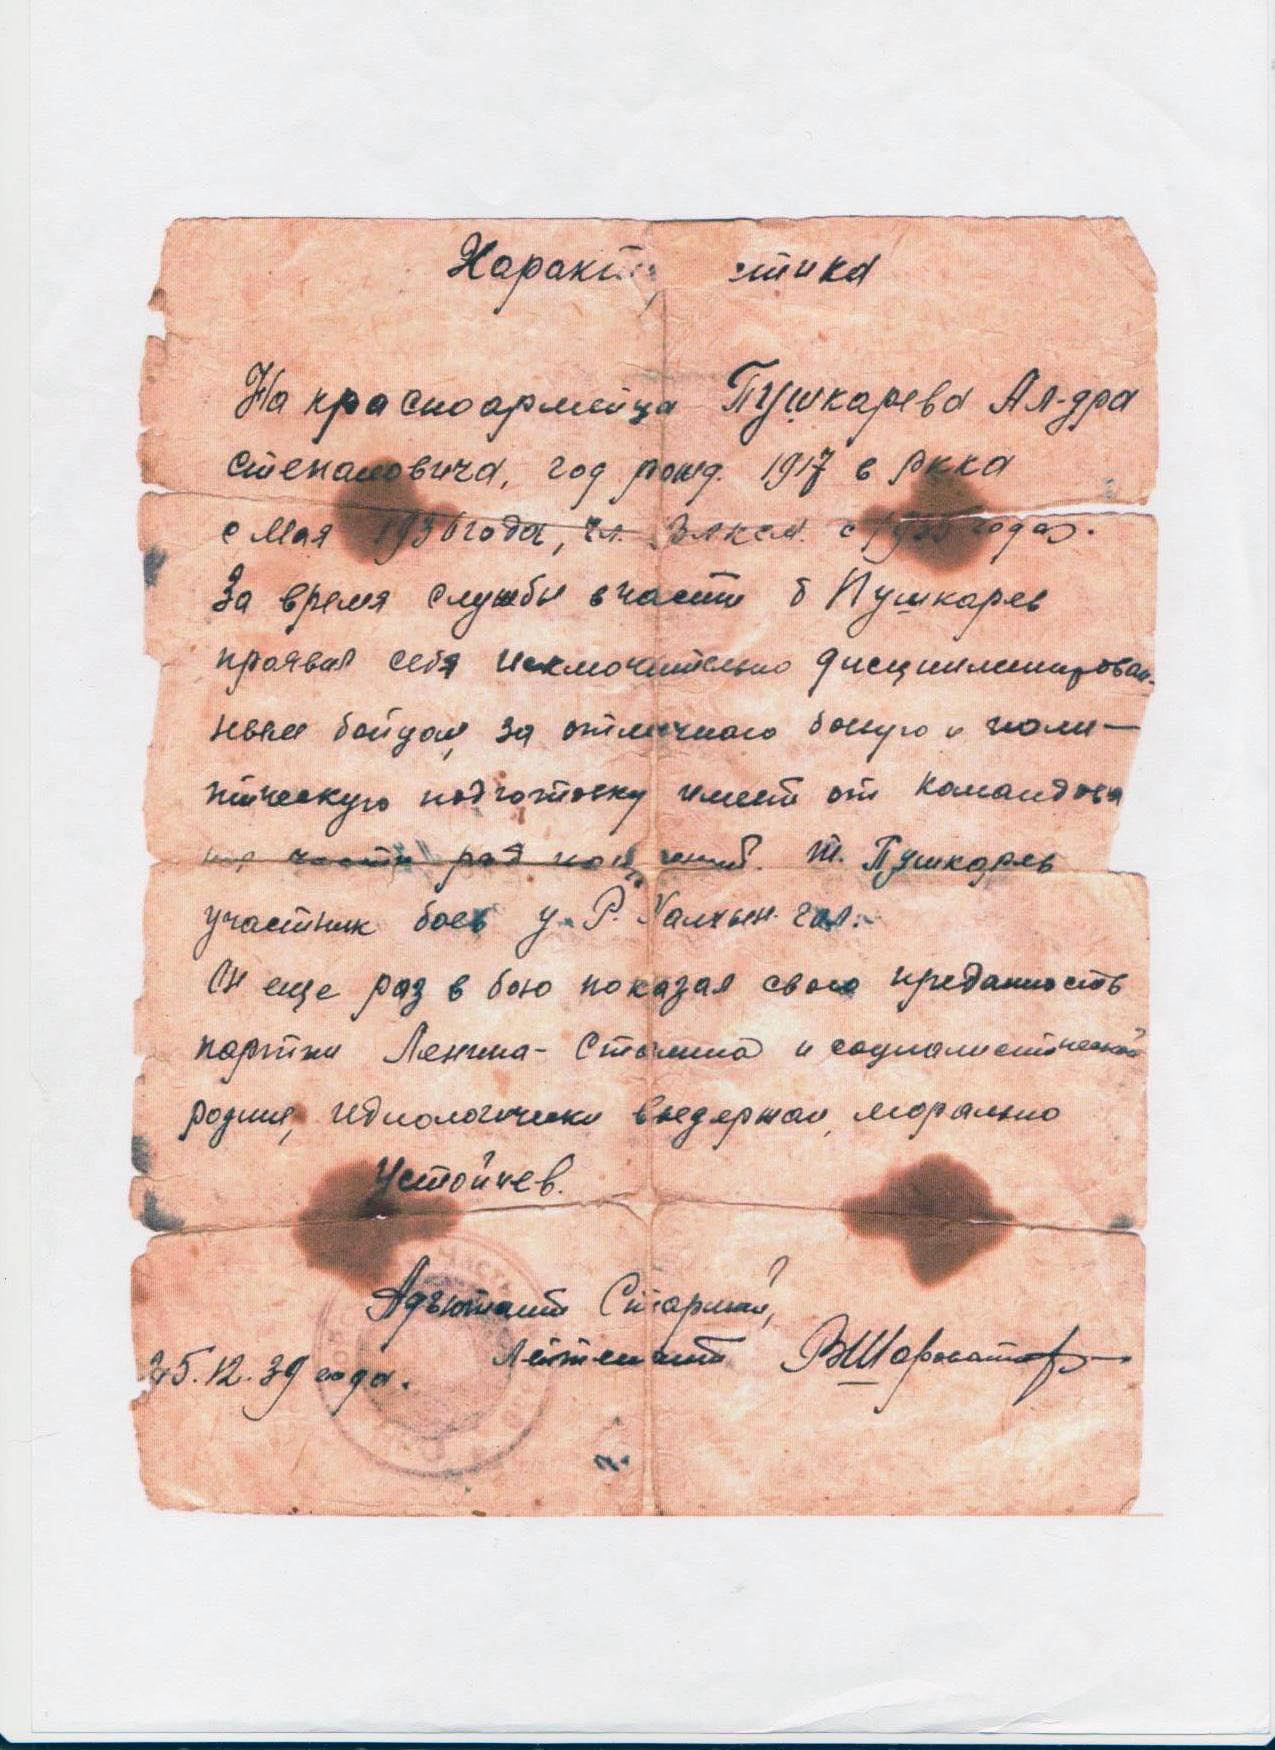 Характ стика
На красноармейца Пушкарева Ал-дра
Степановича, год рожд. 1917 в РККА
с Мая года, чл. ВЛКСМ. с года.
За время службы в части б Пушкарев
проявил себя исключительно дисциплинирован-
ным бойцом, за отличного боевую и поли-
тическую подготовку имеет от командова
части ряд т. Пушкарев
участник боев у Р. Халхын-гол.
И еще раз в бою показал свою преданность
партии Ленина-Сталина и социалистической
родине, идиологически выдержан, морально
Устойчев.
Адъютант Старший,
Лейтенант
25.12.39 года.